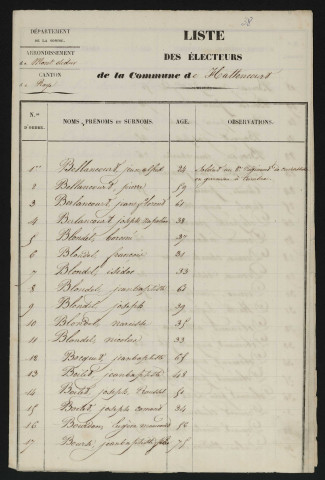 58
DÉPARTEMENT
DE LA SOMME.
ARRONDISSEMENT
de
CANTON
de Roye
LISTE
DES ÉLECTEURS
de la Commune de Hattencourt
N.os
D'ORDRE.
NOMS, PRÉNOMS ET SURNOMS.
AGE.
OBSERVATIONS.
1er Bellancourt, jean alfred 24 Soldat au
en garnison à
2 Bellancourt, pierre 59
3 Berlancourt, jean florend 61
4 Berlancourt joseph napoléon 38
5 Blondel, 37
6 Blondel, francois 31
7 Blondel, isidor 33
8 Blondel, jeanbaptiste 61
9 Blondel, joseph 39
10 Blondel, narcisse 35
11 Blondel, nicolas 33
12 Bocquet, jeanbaptiste 65
13 Boitel jeanbaptiste 48
14 Boitel, joseph 51
15 Boitel, joseph 34
16 56
17 jeanbaptiste 75